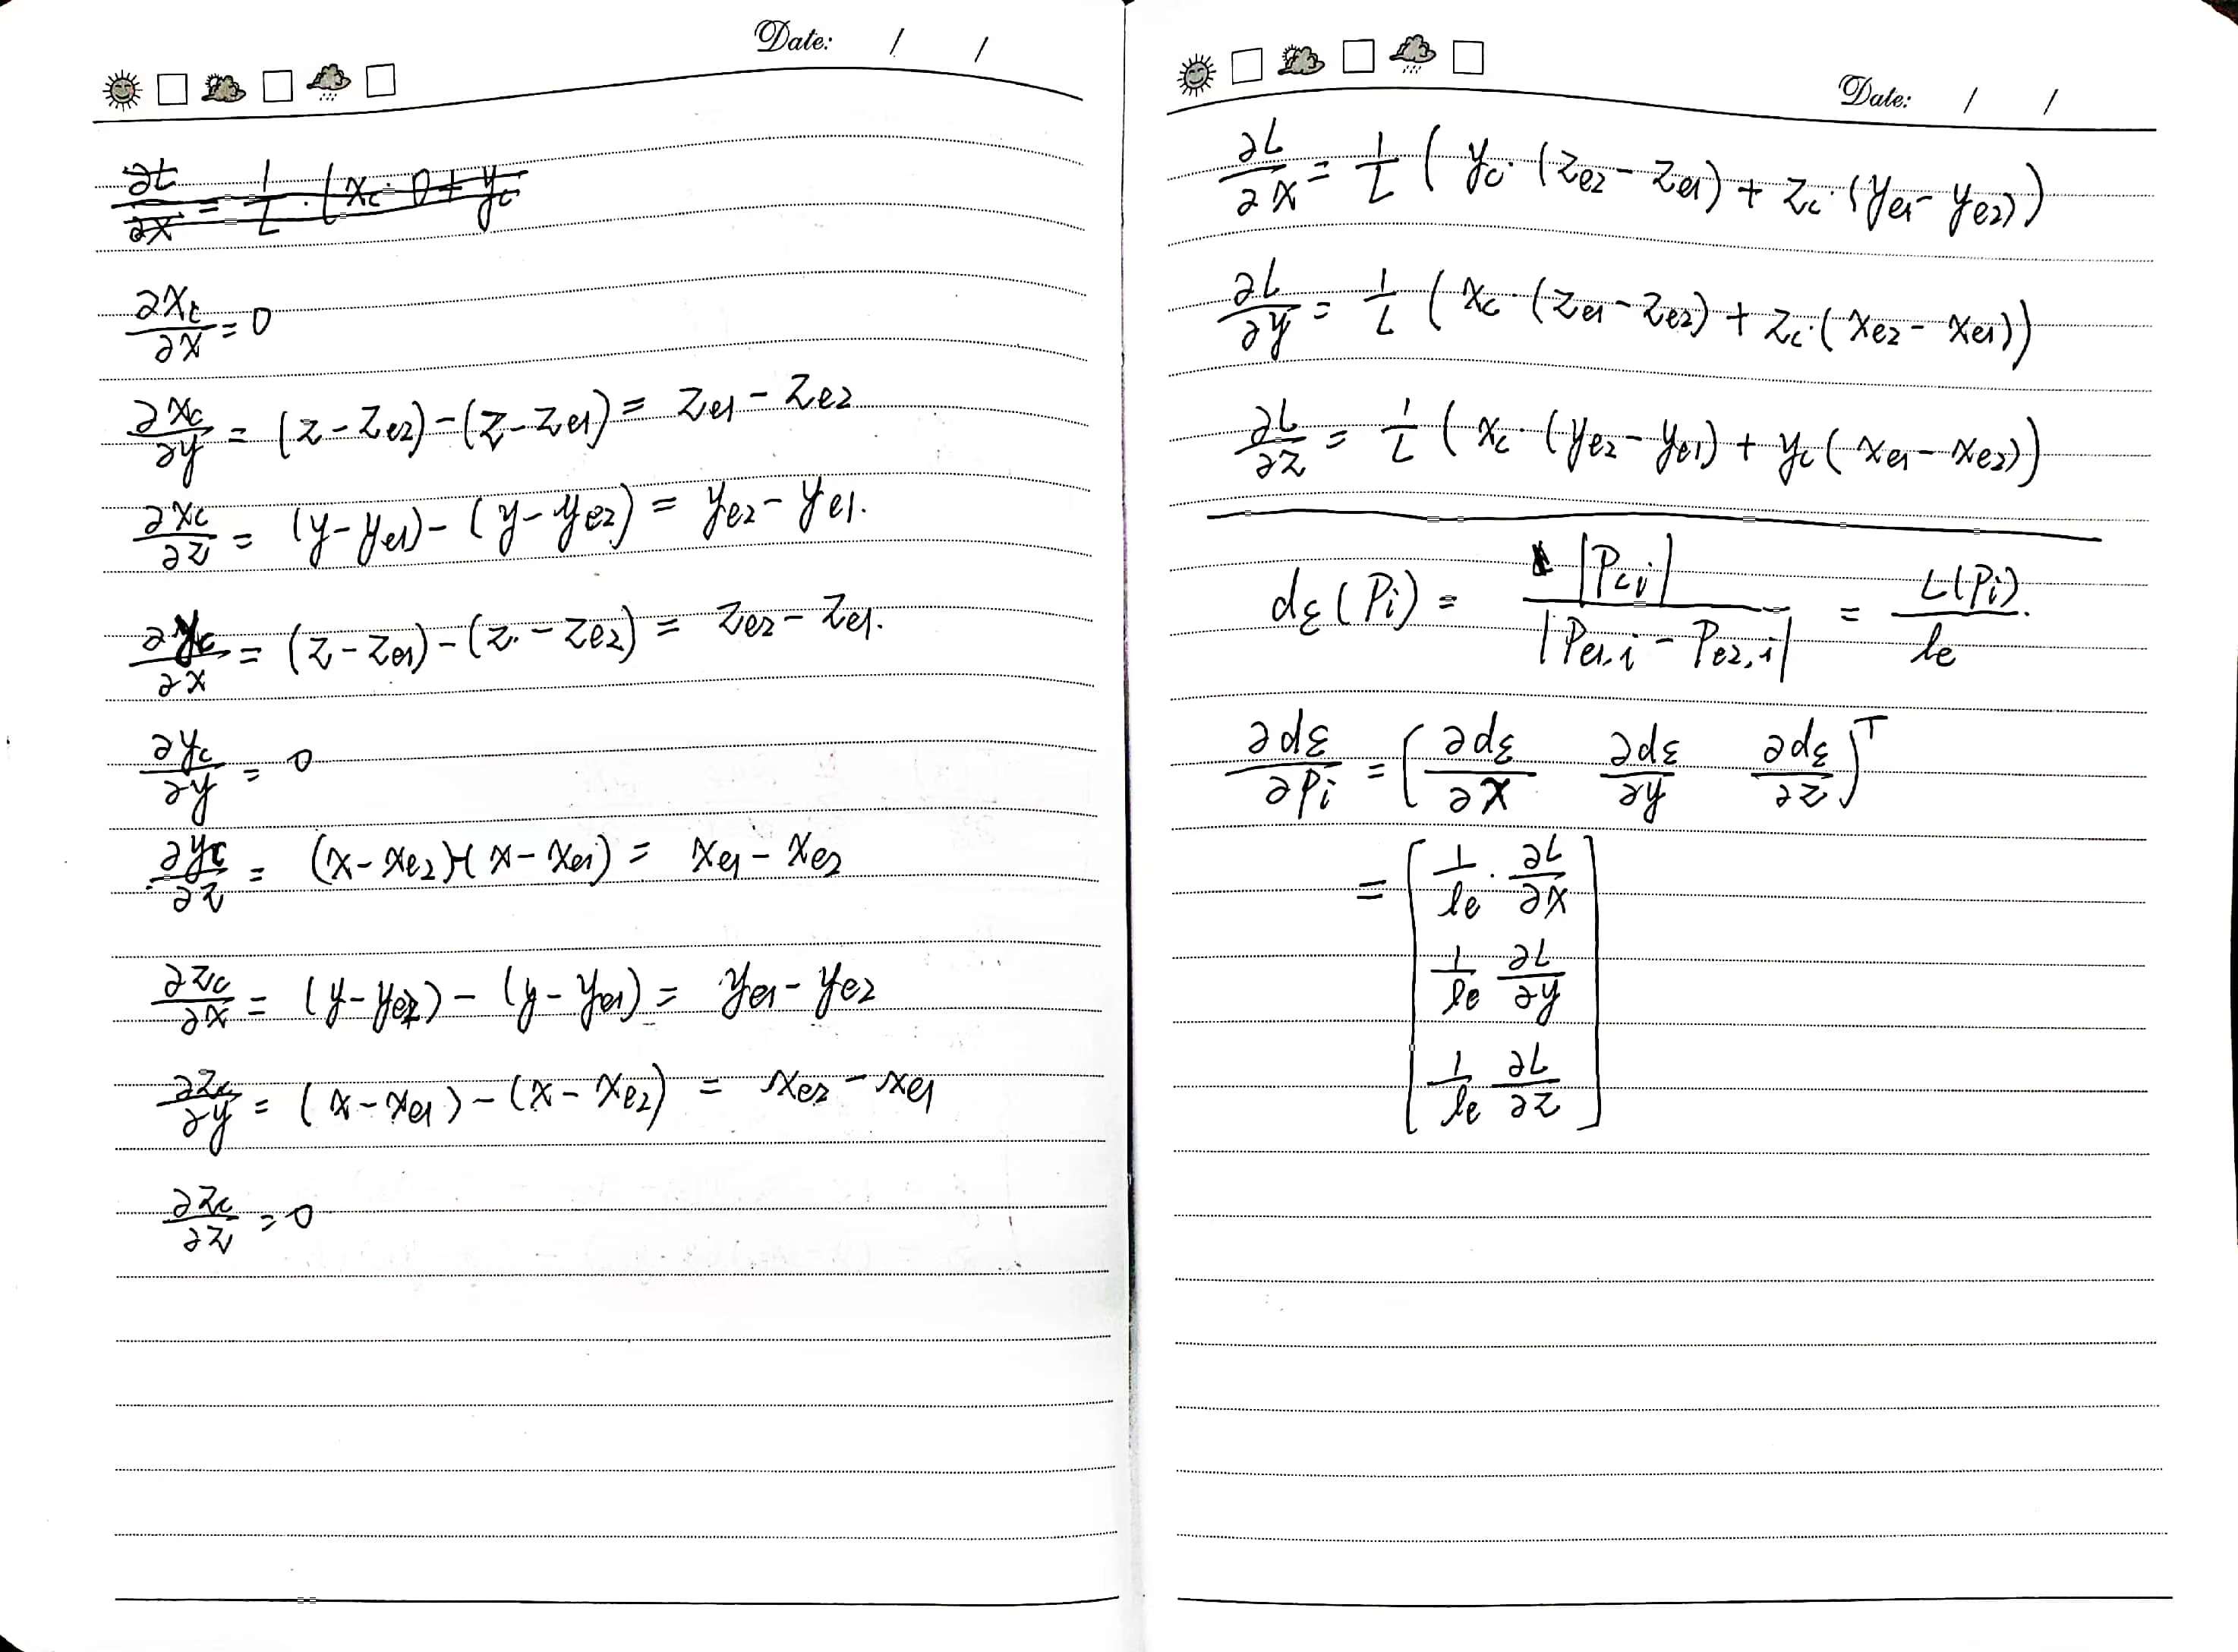 Date: / /
∂L/∂x = 1/L · (x_c · 0 + y_c
∂x_c/∂x = 0
∂x_c/∂y = (z - z_e2) - (z - z_e1) = z_e1 - z_e2
∂x_c/∂z = (y - y_e1) - (y - y_e2) = y_e2 - y_e1.
∂y_c/∂x = (z - z_e1) - (z - z_e2) = z_e2 - z_e1.
∂y_c/∂y = 0
∂y_c/∂z = (x - x_e2) - (x - x_e1) = x_e1 - x_e2
∂z_c/∂x = (y - y_e2) - (y - y_e1) = y_e1 - y_e2
∂z_c/∂y = (x - x_e1) - (x - x_e2) = x_e2 - x_e1
∂z_c/∂z = 0
Date: / /
∂L/∂x = 1/L ( y_c · (z_e2 - z_e1) + z_c · (y_e1 - y_e2))
∂L/∂y = 1/L ( x_c · (z_e1 - z_e2) + z_c · (x_e2 - x_e1))
∂L/∂z = 1/L ( x_c · (y_e2 - y_e1) + y_c ( x_e1 - x_e2))
d_ε(P_i) = |P_ci| / |P_e1,i - P_e2,i| = L(P_i) / l_e.
∂d_ε/∂P_i = [ ∂d_ε/∂x ∂d_ε/∂y ∂d_ε/∂z ]^T
= [ 1/l_e · ∂L/∂x
1/l_e ∂L/∂y
1/l_e ∂L/∂z ]